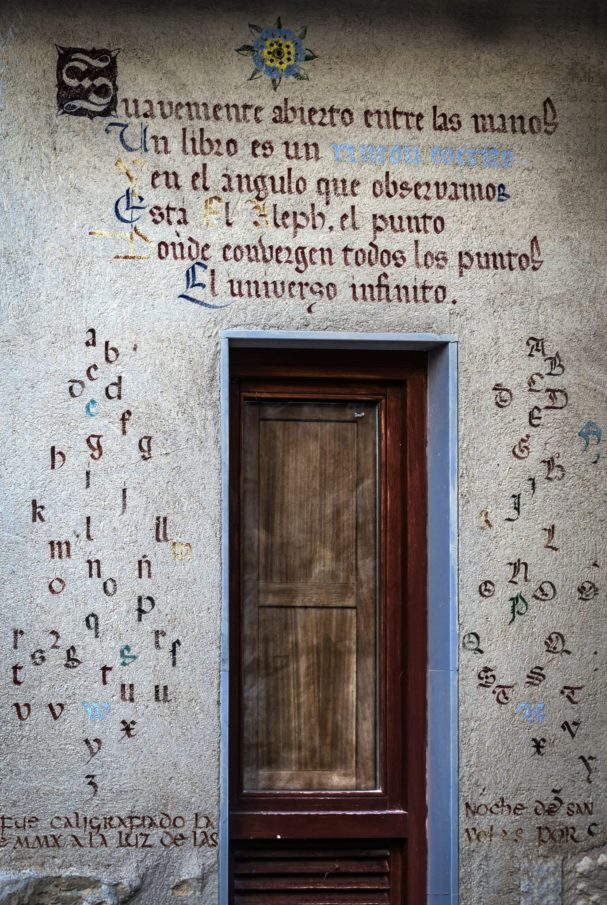 Suavemente abierto entre las manos
Un libro es un rincón escrito
Y en el ángulo que observamos
Está El Aleph, el punto
Donde convergen todos los puntos
El universo infinito.
a b
c
d d
e
f
g g
h
i
j
k
l ll
m w
n ñ
o o
p
q
r r
s s s
t t
u u
v v w
x
y
z
A B
C
D D
E
G
H
I J
L
N
O O
P
Q Q
S S
T T
V
X
Y
Z
fue caligrafiado la noche de san
e MMX a la luz de las velas por